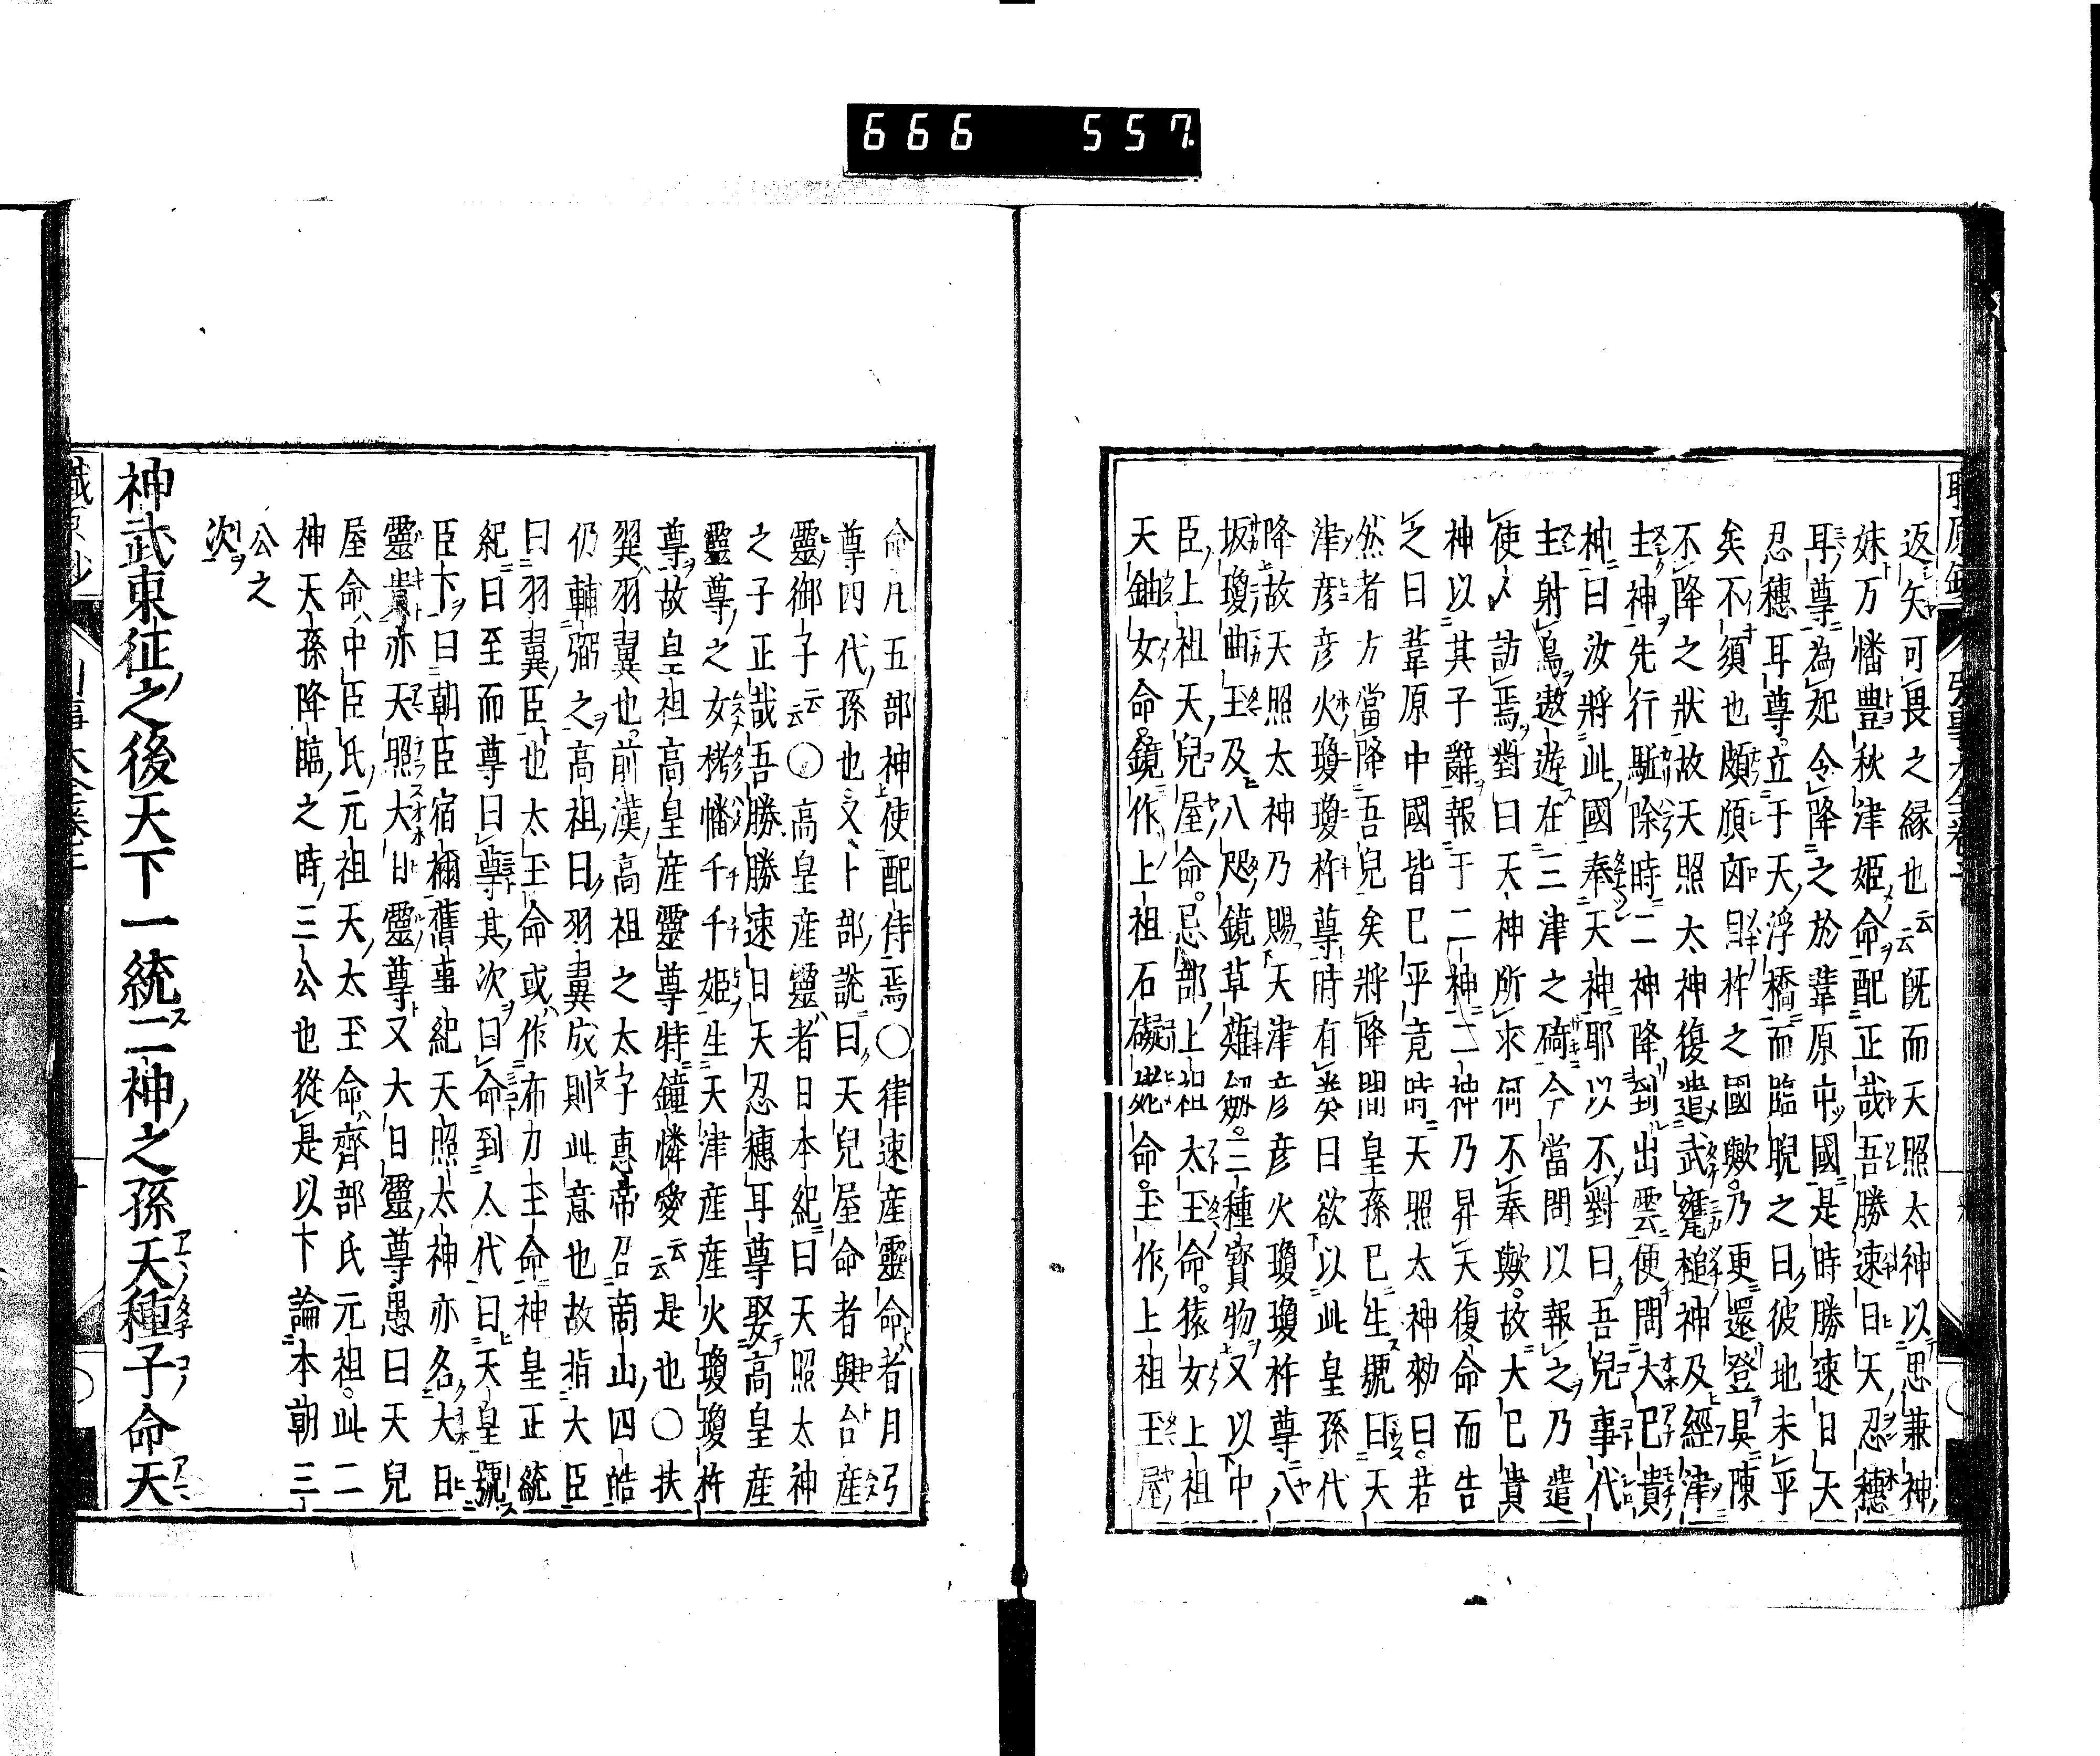 666 557
返矢可畏之縁也云云既而天照太神以思兼神
妹万幡豊秋津姫命配正哉吾勝速日天忍穂
耳尊為妃令降之於葦原中國是時勝速日天
忍穂耳尊立于天浮橋而臨睨之曰彼地未平
矣不須也頗傾凶目杵之國歟乃更還登具陳
不降之状故天照太神復遣武甕槌神及經津
主神先行駈除時二神降到出雲便問大己貴
神曰汝將此國奉天神耶以不對曰吾兒事代
主射鳥遨遊在三津之碕今當問以報之乃遣
使人訪焉對曰天神所求何不奉歟故大己貴
神以其子辭報于二神二神乃昇天復命而告
之曰葦原中國皆已平竟時天照太神勅曰若
然者方當降吾兒矣將降間皇孫已生號曰天
津彦彦火瓊瓊杵尊時有奏曰欲以此皇孫代
降故天照太神乃賜天津彦彦火瓊瓊杵尊八
坂瓊曲玉及八咫鏡草薙劔三種寶物又以中
臣上祖天兒屋命忌部上祖太玉命猿女上祖
天鈿女命鏡作上祖石礙姥命玉作上祖玉屋
命凡五部神使配侍焉〇律速産靈命者月弓
尊四代孫也又卜部説曰天兒屋命者興台産
靈御子云云〇高皇産靈者日本紀曰天照太神
之子正哉吾勝勝速日天忍穂耳尊娶高皇産
靈尊之女栲幡千千姫生天津産産火瓊瓊杵
尊故皇祖高皇産靈尊特鐘憐愛云云是也〇扶
翼羽翼也前漢高祖之太子惠帝召商山四皓
仍輔弼之高祖曰羽翼成則此意也故指大臣
曰羽翼臣也太玉命或作布力玉命神皇正統
紀曰至而尊曰尊其次曰命到人代曰天皇號
臣下曰朝臣宿禰舊事紀天照太神亦名大日
靈貴亦天照大日靈尊又大日靈尊愚曰天兒
屋命中臣氏元祖天太玉命齊部氏元祖此二
神天孫降臨之時三公也從是以下論本朝三
公之
次
神武東征之後天下一統二神之孫天種子命天